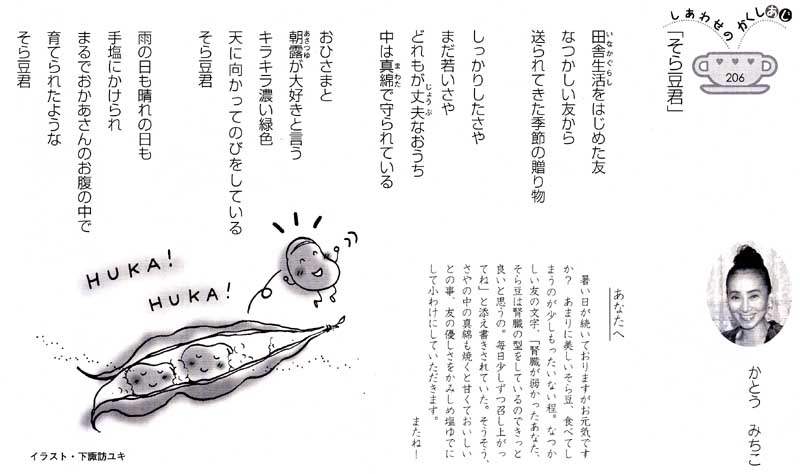 しあわせのかくしあじ
206
「そら豆君」
田舎生活をはじめた友
いなかぐらし
なつかしい友から
送られてきた季節の贈り物
しっかりしたさや
まだ若いさや
どれもが丈夫なおうち
じょうぶ
中は真綿で守られている
まわた
おひさまと
朝露が大好きと言う
あさつゆ
キラキラ濃い緑色
天に向かってのびをしている
そら豆君
雨の日も晴れの日も
手塩にかけられ
まるでおかあさんのお腹の中で
育てられたような
そら豆君
かとう みちこ
あなたへ
暑い日が続いておりますがお元気です
か? あまりに美しいそら豆、食べてし
まうのが少しもったいない程。なつか
しい友の文字、「腎臓が弱かったあなた、
そら豆は腎臓の型をしているのできっと
良いと思うの。毎日少しずつ召し上がっ
てね」と添え書きされていた。そうそう、
さやの中の真綿も焼くと甘くておいしい
との事、友の優しさをかみしめ塩ゆでに
して小わけにしていただきます。
またね!
HUKA!
HUKA!
イラスト・下諏訪ユキ